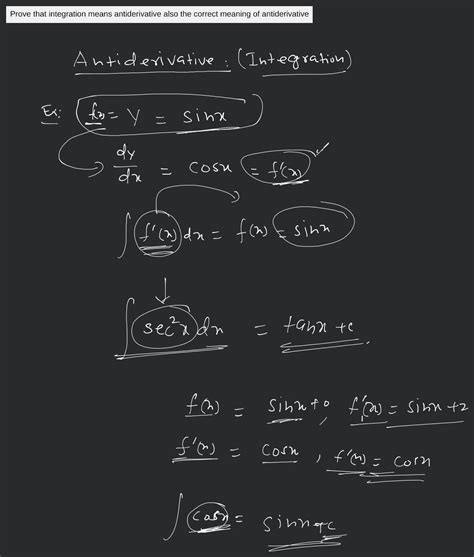 Prove that integration means antiderivative also the correct meaning of antiderivative
Antiderivative : (Integration)
Ex: f(x) = y = sinx
dy/dx = cosx = f'(x) ✓
∫ f'(x) dx = f(x) = sinx
∫ sec²x dx = tanx + c
f(x) = sinx + 0, f'(x) = sinx + 2
f'(x) = cosx, f'(x) = cosx
∫ cosx = sinx + c